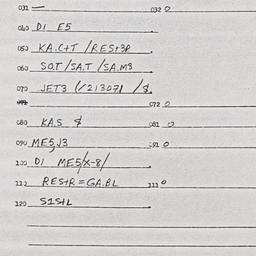 031 — 032 0
040 DI E5
050 KA.C+T /RES+3P
060 SO.T/SA.T /SA.M3
070 JET3 (/213071 /8.
072 0
080 KA.S 8 081 0
090 ME5,J3 091 0
100 DI ME5/X-8/
110 RES+R=GA.BL 111 0
120 S1S+L